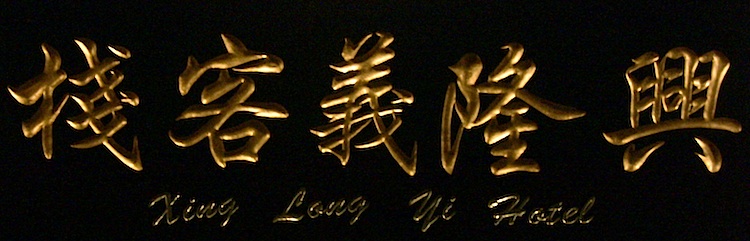 興隆義客棧
Xing Long Yi Hotel